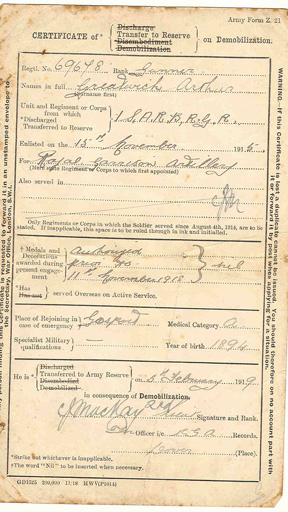 Army Form Z. 21
CERTIFICATE of*
Discharge
Transfer to Reserve
Disembodiment
Demobilization
on Demobilization.
Regtl. No. 69678 Rank Gunner
Names in full Arthur
(Surname first)
Unit and Regiment or Corps
from which
*Discharged
Transferred to Reserve
Enlisted on the 15th November 1915.
For Royal Garrison Artillery
(Here state Regiment or Corps to which first appointed)
Also served in
Only Regiments or Corps in which the Soldier served since August 4th, 1914, are to be
stated. If inapplicable, this space is to be ruled through in ink and initialled.
†Medals and
Decorations
awarded during
present engagement
Authorized
prior to
11th November 1918
nil
*Has
Has not
served Overseas on Active Service.
Place of Rejoining in
case of emergency
Gosford
Medical Category A
Specialist Military
qualifications
Year of birth 1894
He is*
Discharged
Transferred to Army Reserve
Disembodied
Demobilized
on 5th February 1919
in consequence of Demobilization.
Signature and Rank.
Officer i/c R.G.A. Records.
Dover (Place).
*Strike out whichever is inapplicable.
†The word "Nil" to be inserted when necessary.
WARNING.—If this Certificate is lost a duplicate cannot be issued. You should therefore on no account part
with it or forward it by post when applying for a situation.